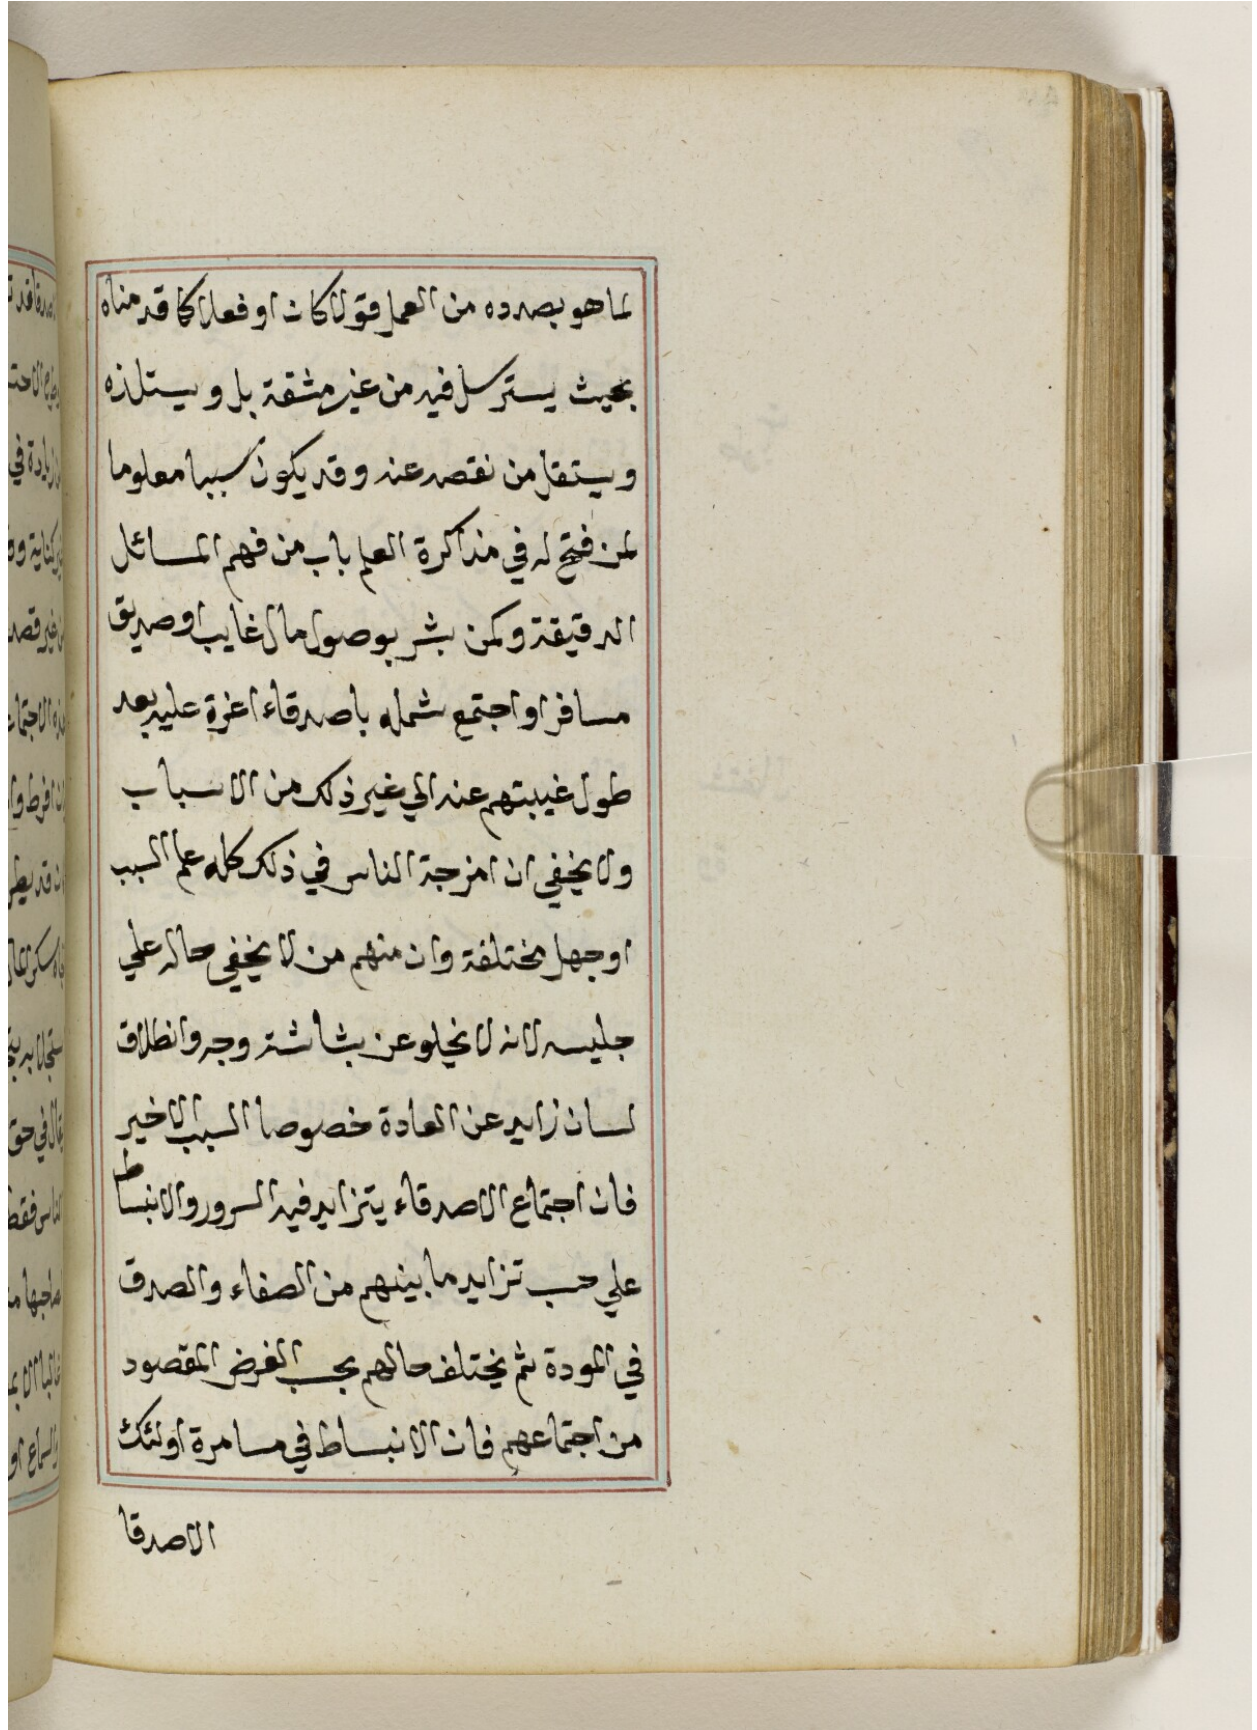 لما هو بصدده من العمل قولا كان او فعلا كما قدمناه
بحيث يسترسل فيه من غير مشقة بل ويستلذه
ويستقل من نقصه عنه وقد يكون سببا معلوما
لمن فتح له في مذاكرة العلم باب من فهم المسائل
الدقيقة وكمن بشر بوصول مال غايب او صديق
مسافر او اجتمع شمله باصدقاء اعزة عليه بعد
طول غيبتهم عنه الي غير ذلك من الاسباب
ولا يخفي ان امزجة الناس في ذلك كله علم السبب
او جهل مختلفة وان منهم من لا يخفي حاله علي
جليسه لانه لا يخلو عن بشاشة وجه وانطلاق
لسان زايد عن العادة خصوصا السبب الاخير
فان اجتماع الاصدقاء يتزايد فيه السرور والانبساط
علي حسب تزايد ما بينهم من الصفاء والصدق
في المودة ثم يختلف حالهم بحسب الغرض المقصود
من اجتماعهم فان الانبساط في مسامرة اولئك
الاصدقا